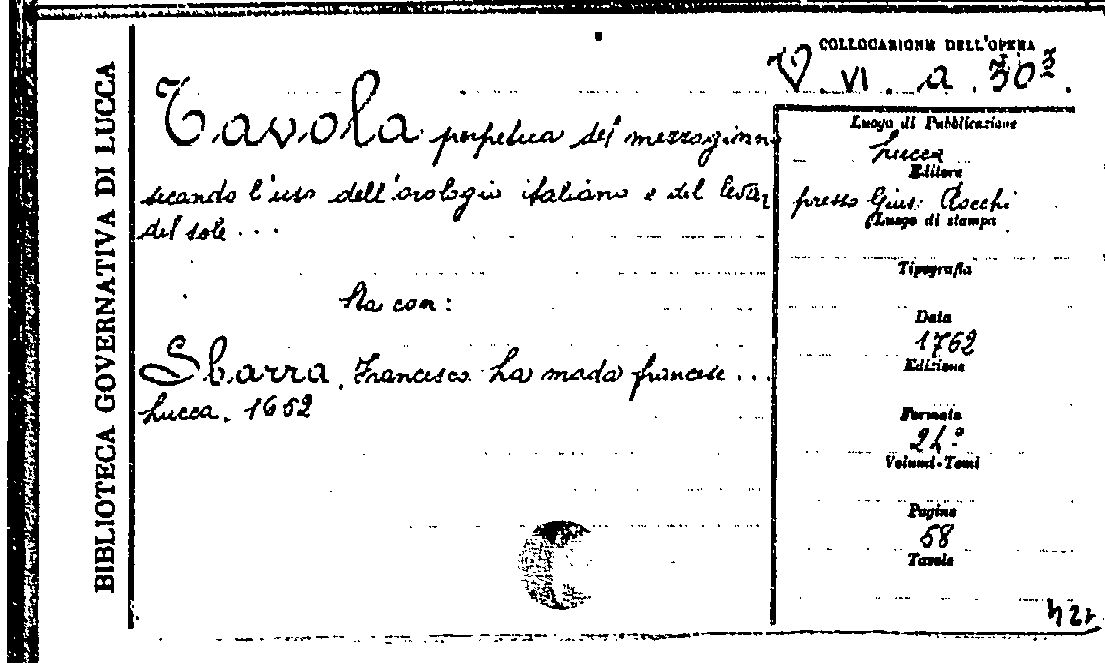 BIBLIOTECA GOVERNATIVA DI LUCCA
COLLOCAZIONE DELL'OPERA
V. VI. a. 30³.
Tavola perpetua del mezzogiorno
secondo l'uso dell'orologio italiano e del levar
del sole...
Sta con:
Sbarra, Francesco. La moda francese...
Lucca, 1652
Luogo di Pubblicazione
Lucca
Editore
presso Gius. Rocchi
Luogo di stampa
Tipografia
Data
1762
Edizione
Formato
24°
Volumi-Tomi
Pagine
58
Tavole